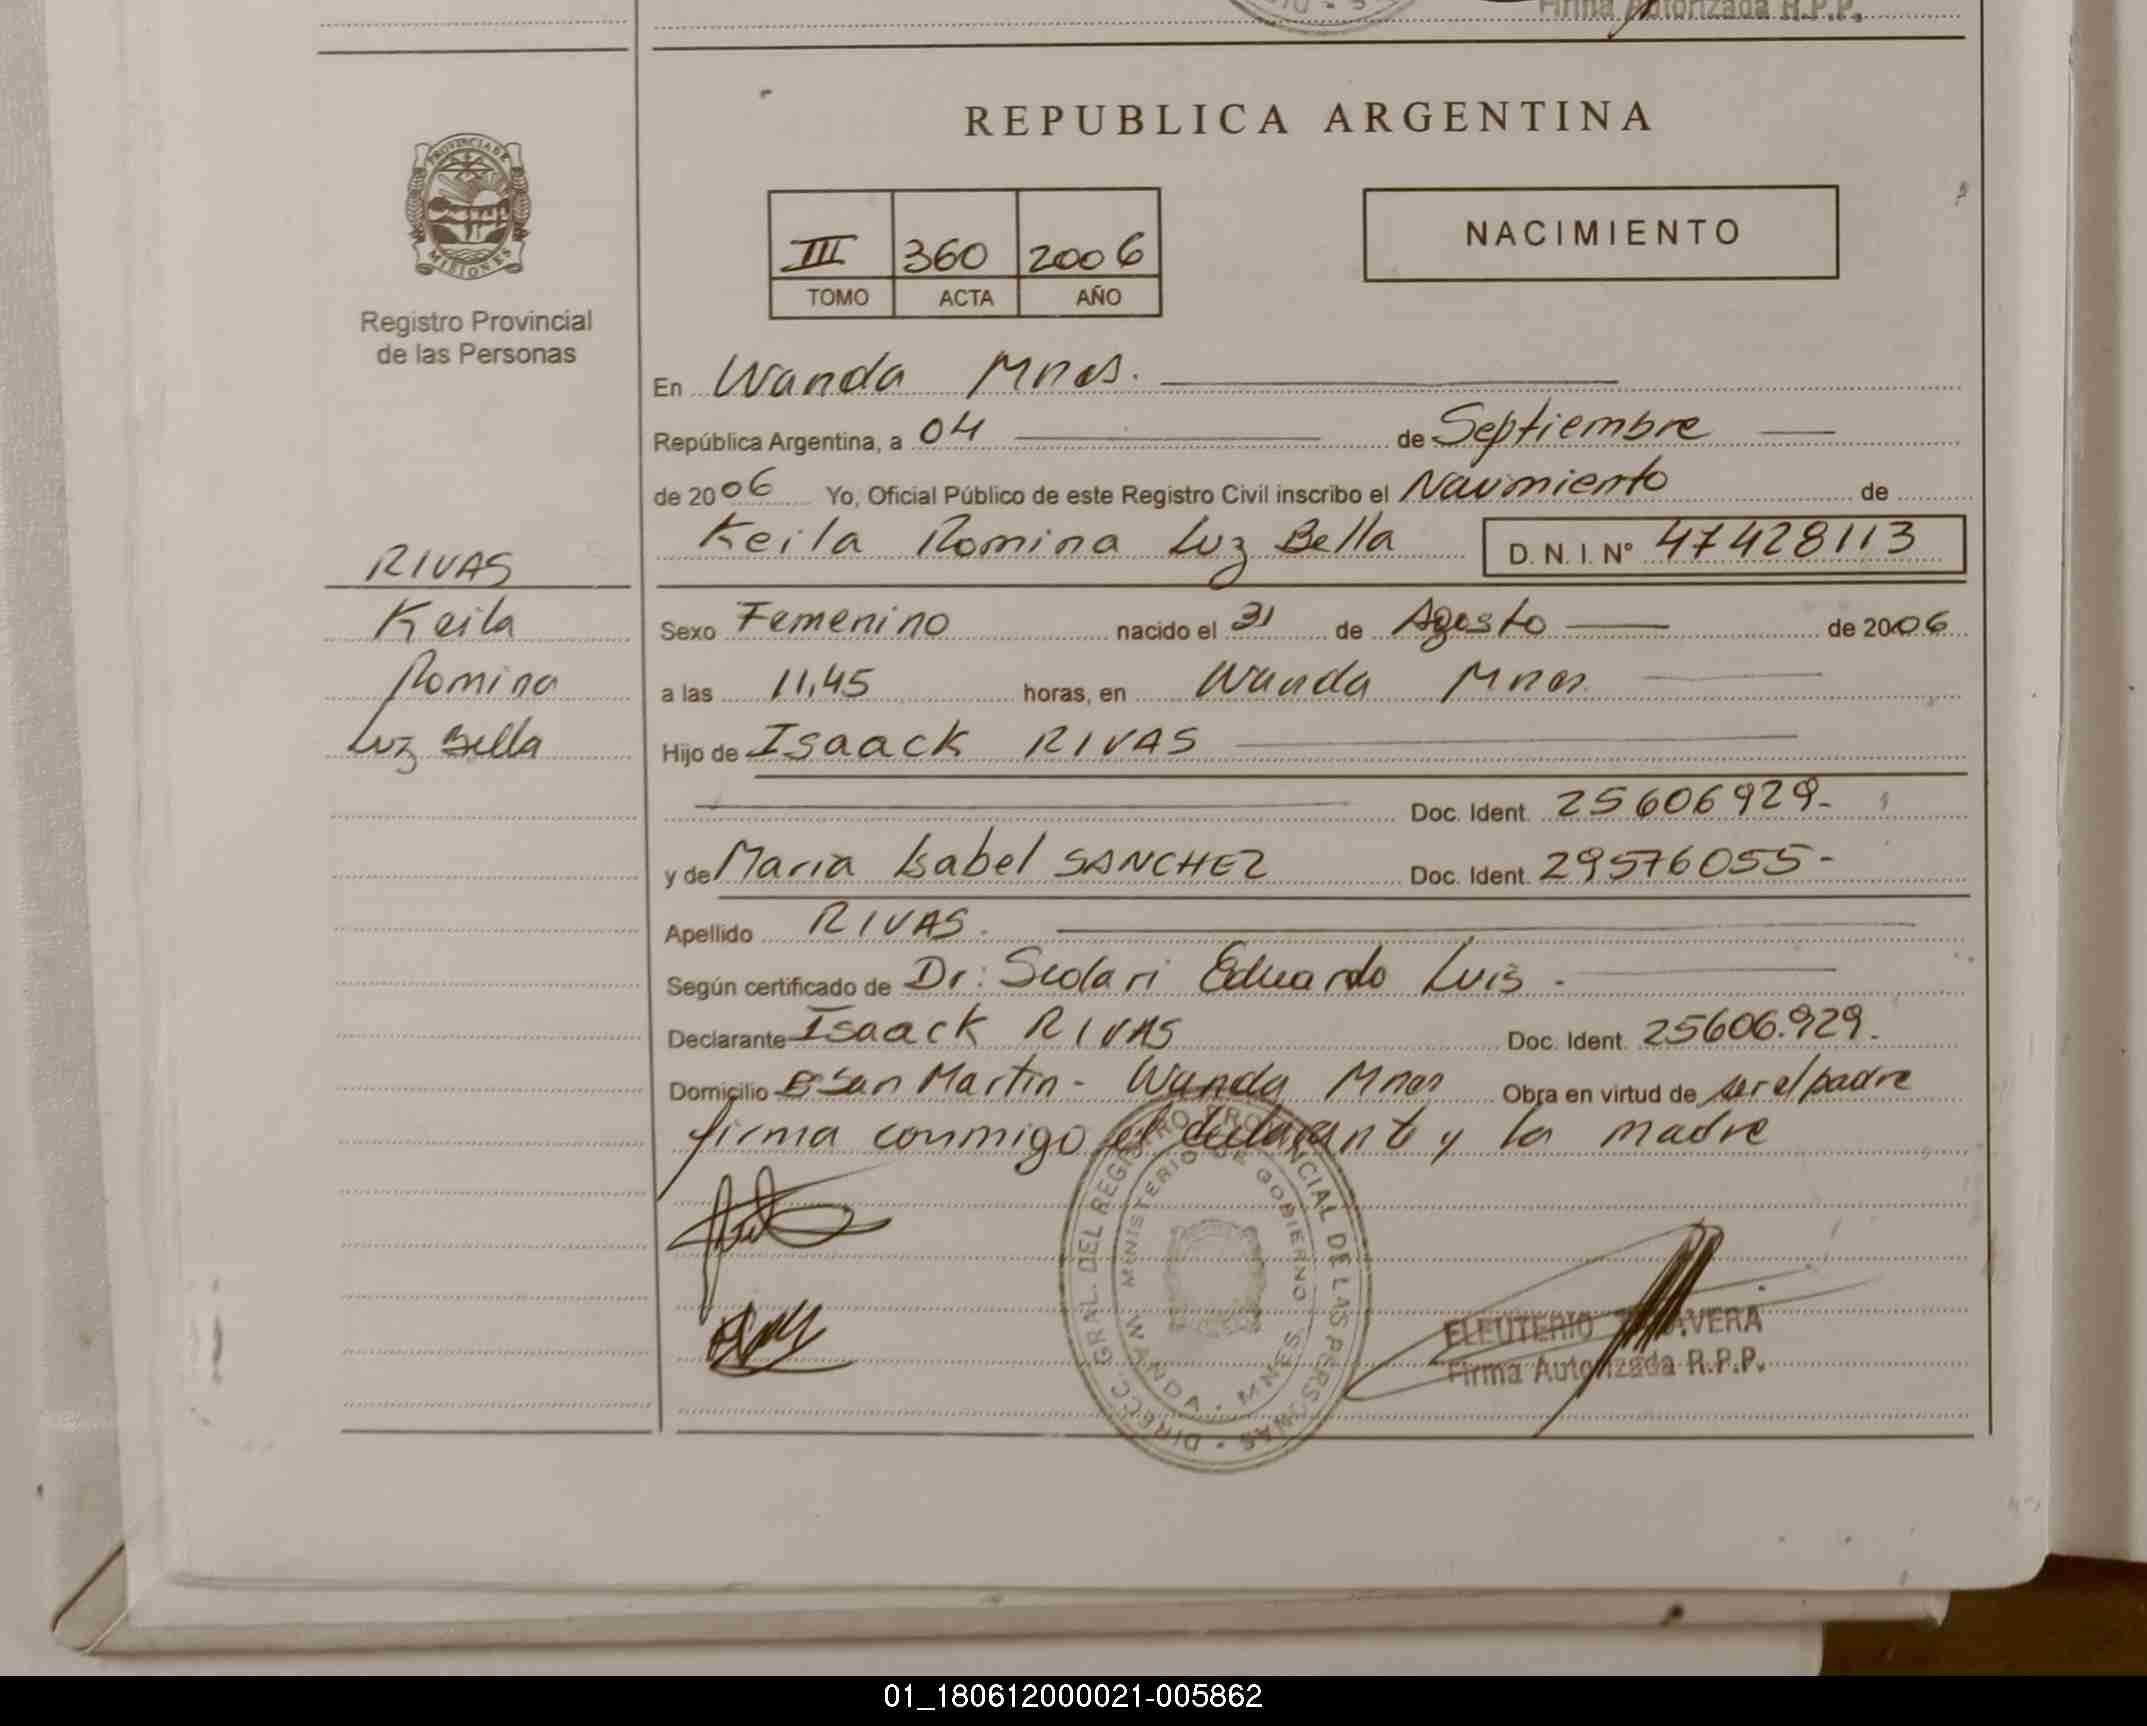 Firma Autorizada R.P.P.
REPUBLICA ARGENTINA
PROVINCIA DE
MISIONES
III 360 2006
TOMO ACTA AÑO
NACIMIENTO
Registro Provincial
de las Personas
En Wanda Mnes.
República Argentina, a 04 de Septiembre
de 2006 Yo, Oficial Público de este Registro Civil inscribo el Nacimiento de
Keila Romina Luz Bella D. N. I. N° 47428113
RIVAS
Keila
Romina
Luz Bella
Sexo Femenino nacido el 31 de Agosto de 2006
a las 11,45 horas, en Wanda Mnes
Hijo de Isaack RIVAS
Doc. Ident. 25606929-
y de Maria Isabel SANCHEZ Doc. Ident. 29576055-
Apellido RIVAS.
Según certificado de Dr: Scolari Eduardo Luis -
Declarante Isaack RIVAS Doc. Ident. 25606.929.
Domicilio San Martin - Wanda Mnes Obra en virtud de ser el padre
firma conmigo el declarante y la madre
DIRECC. GRAL. DEL REGISTRO PROVINCIAL DE LAS PERSONAS
MINISTERIO DE GOBIERNO
WANDA - MNES.
ELEUTERIO
Firma Autorizada R.P.P.
01_180612000021-005862